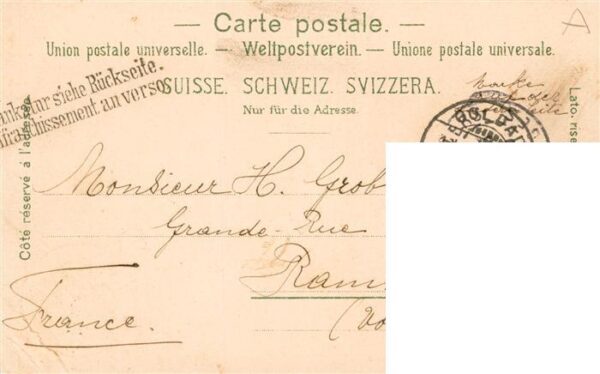 — Carte postale. —
Union postale universelle. — Weltpostverein. — Unione postale universale.
SUISSE. SCHWEIZ. SVIZZERA.
Nur für die Adresse.
siehe Rückseite.
an verso
Côté réservé à l'adresse.
Lato rise
A
Monsieur H. Grob
Grande-Rue
Ram
(Vo
France.